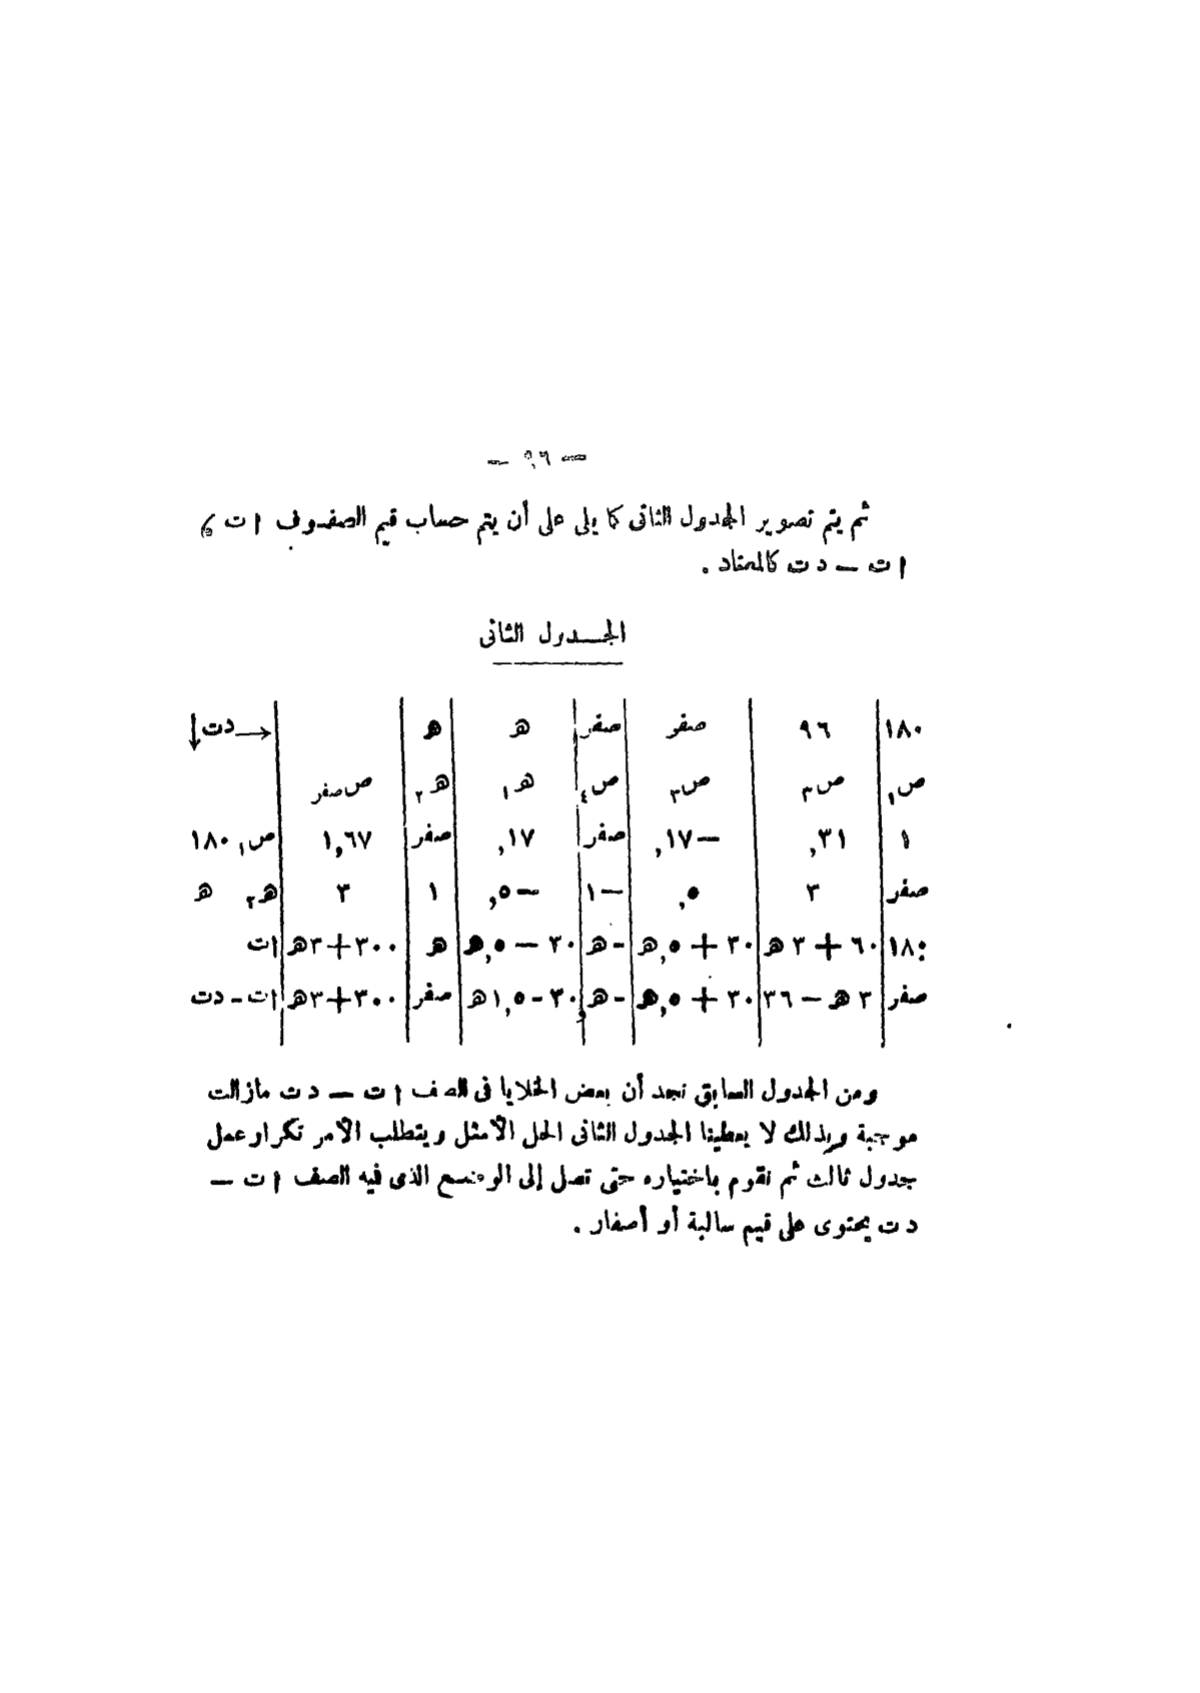 — ٩٦ —
ثم يتم تصوير الجدول الثانى كما يلى على أن يتم حساب قيم الصفوف ا ت ،
ا ت — د ت كالمعتاد .
الجدول الثانى
١٨٠ | ٩٦ | صفر | صفر | هـ | هـ | | → د ت ↓
ص١ | ص٢ | ص٣ | ص٤ | هـ١ | هـ٢ | ص صفر
١ | ٣١, | —١٧, | صفر | ١٧, | صفر | ١,٦٧ | ص١ ١٨٠
صفر | ٣ | ٥, | —١ | —٥, | ١ | ٣ | هـ٢ هـ
١٨٠ | ٦٠ + ٣ هـ | —٣٠ + ٥, هـ | - هـ | ٣٠ — ٥, هـ | هـ | ٣٠٠ + ٣ هـ | ا ت
صفر | ٣ هـ — ٣٦ | —٣٠ + ٥, هـ | - هـ | ٣٠ - ١,٥ هـ | صفر | ٣٠٠ + ٣ هـ | ا ت - د ت
ومن الجدول السابق نجد أن بعض الخلايا فى الصف ا ت — د ت مازالت
موجبة وبذلك لا يعطينا الجدول الثانى الحل الأمثل ويتطلب الأمر تكرار عمل
جدول ثالث ثم نقوم باختياره حتى تصل إلى الوضع الذى فيه الصف ا ت —
د ت يحتوى على قيم سالبة أو أصفار .